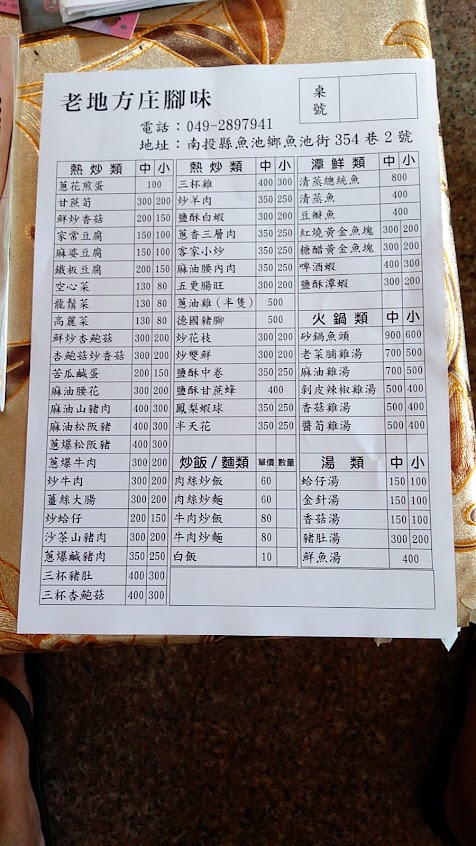 老地方庄腳味
桌號
電話：049-2897941
地址：南投縣魚池鄉魚池街354巷2號
熱炒類 中 小
蔥花煎蛋 100
甘蔗筍 300 200
鮮炒香菇 200 150
家常豆腐 150 100
麻婆豆腐 150 100
鐵板豆腐 200 150
空心菜 130 80
龍鬚菜 130 80
高麗菜 130 80
鮮炒杏鮑菇 300 200
杏鮑菇炒香菇 300 200
苦瓜鹹蛋 200 150
麻油腰花 300 200
麻油山豬肉 400 300
麻油松阪豬 400 300
蔥爆松阪豬 400 300
蔥爆牛肉 300 200
炒牛肉 300 200
薑絲大腸 300 200
炒蛤仔 200 150
沙茶山豬肉 300 200
蔥爆鹹豬肉 350 250
三杯豬肚 400 300
三杯杏鮑菇 400 300
熱炒類 中 小
三杯雞 400 300
炒羊肉 350 250
鹽酥白蝦 300 200
蔥香三層肉 350 250
客家小炒 350 250
麻油腰內肉 350 250
五更腸旺 300 200
蔥油雞(半隻) 500
德國豬腳 500
炒花枝 300 200
炒雙鮮 300 200
鹽酥中卷 350 250
鹽酥甘蔗蜂 400
鳳梨蝦球 350 250
半天花 350 250
炒飯/麵類 單價 數量
肉絲炒飯 60
肉絲炒麵 60
牛肉炒飯 80
牛肉炒麵 80
白飯 10
潭鮮類 中 小
清蒸總統魚 800
清蒸魚 400
豆瓣魚 400
紅燒黃金魚塊 300 200
糖醋黃金魚塊 300 200
啤酒蝦 400 300
鹽酥潭蝦 300 200
火鍋類 中 小
砂鍋魚頭 900 600
老菜脯雞湯 700 500
麻油雞湯 700 500
剝皮辣椒雞湯 500 400
香菇雞湯 500 400
醬筍雞湯 500 400
湯類 中 小
蛤仔湯 150 100
金針湯 150 100
香菇湯 150 100
豬肚湯 300 200
鮮魚湯 400